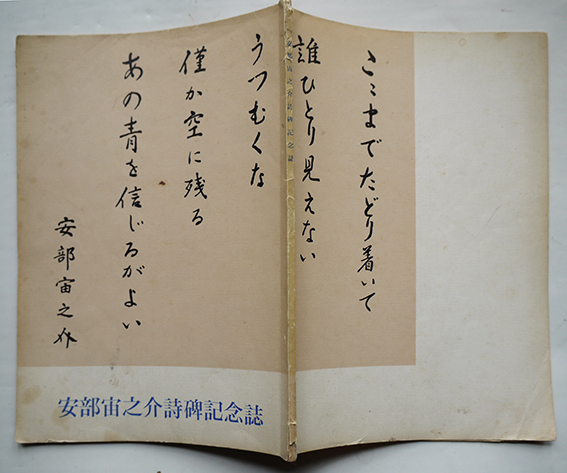 ここまでたどり着いて
誰ひとり見えない
うつむくな
僅か空に残る
あの青を信じるがよい
安部宙之介
安部宙之介詩碑記念誌
安部宙之介詩碑記念誌